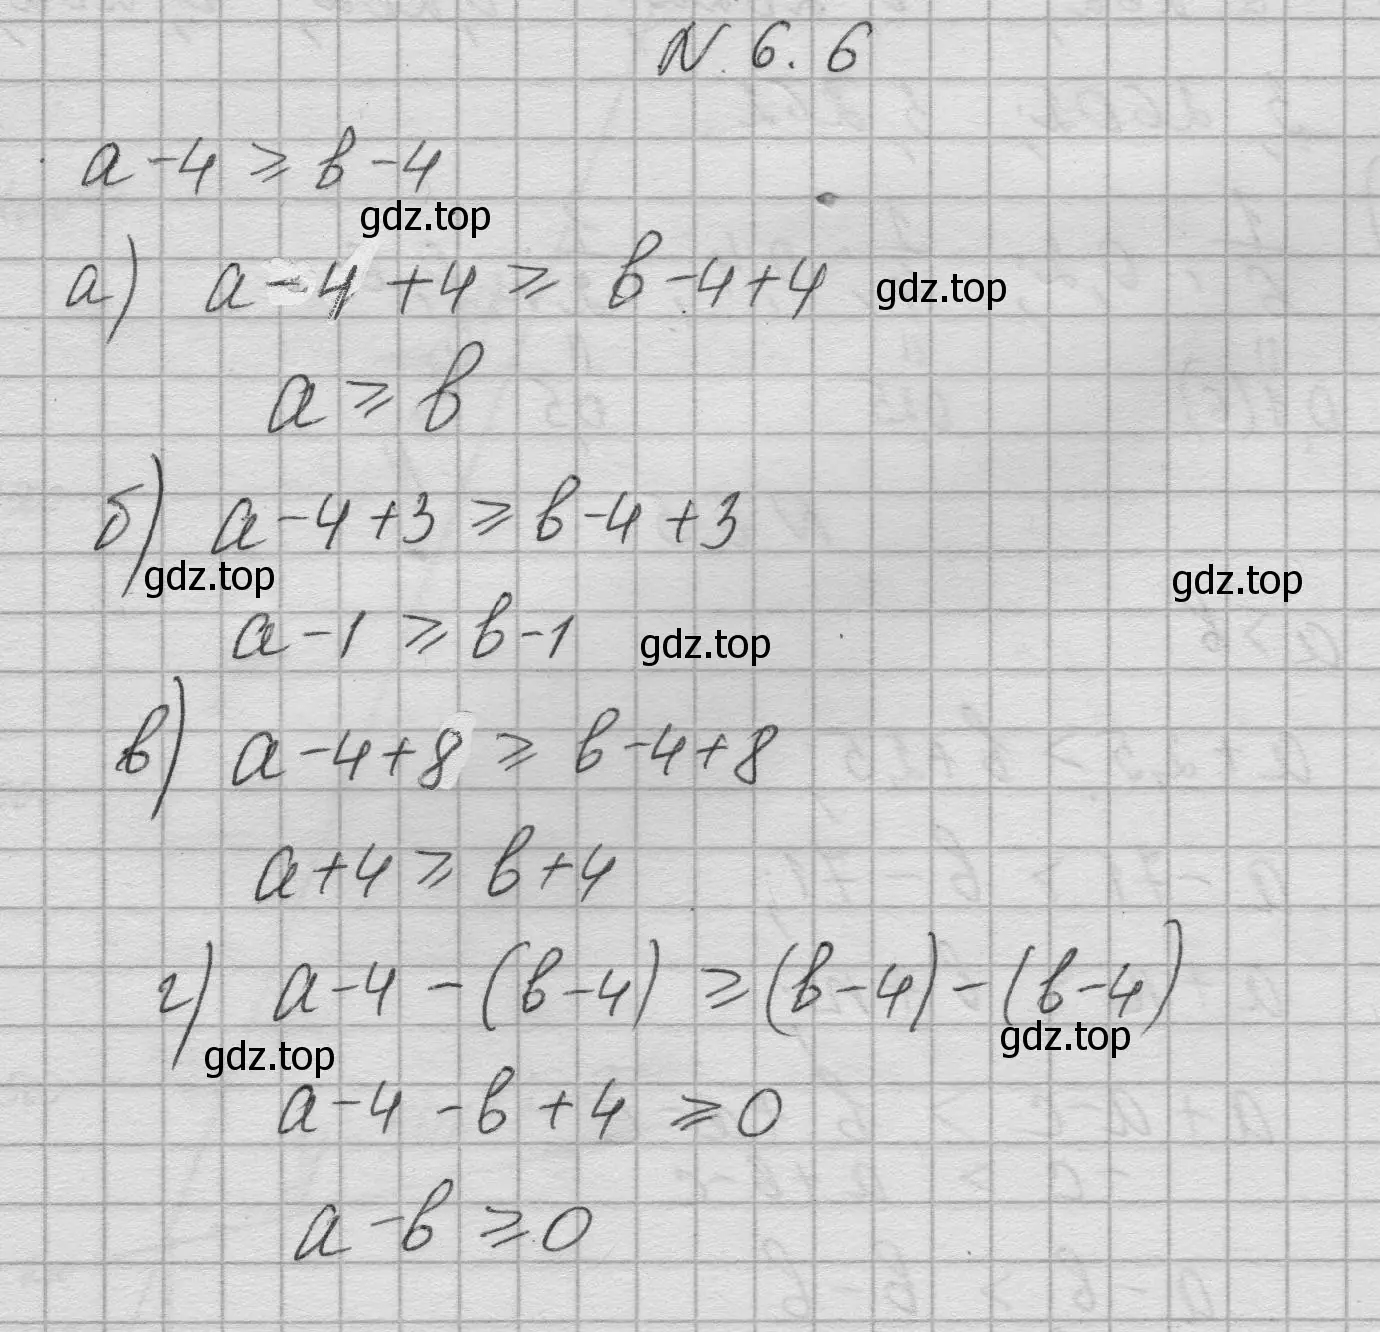 N. 6. 6
a - 4 ⩾ в - 4
gdz.top
а) a - 4 + 4 ⩾ в - 4 + 4 gdz.top
a ⩾ в
б) a - 4 + 3 ⩾ в - 4 + 3
gdz.top gdz.top
a - 1 ⩾ в - 1 gdz.top
в) a - 4 + 8 ⩾ в - 4 + 8
a + 4 ⩾ в + 4
г) a - 4 - (в - 4) ⩾ (в - 4) - (в - 4)
gdz.top gdz.top
a - 4 - в + 4 ⩾ 0
a - в ⩾ 0